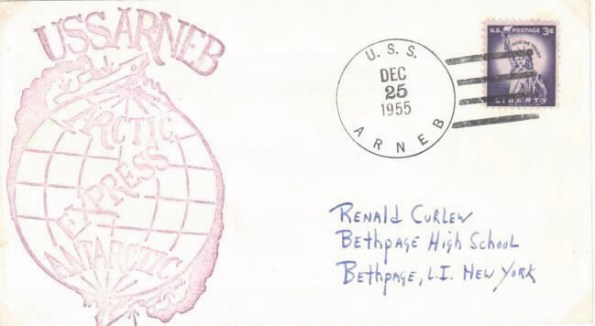 USS ARNEB
ARCTIC
EXPRESS
ANTARCTIC
U.S.S.
DEC
25
1955
ARNEB
U.S. POSTAGE 3¢
LIBERTY
Renald Curlew
Bethpage High School
Bethpage, L.I. New York